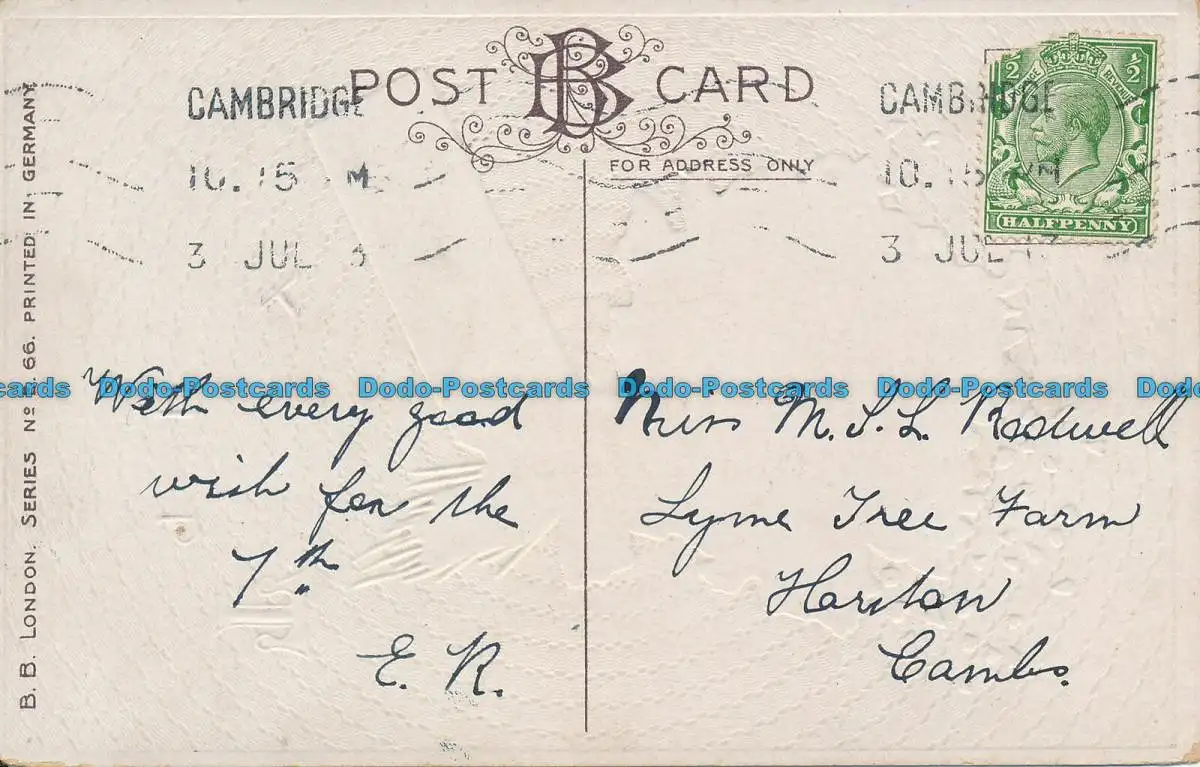 POST BB CARD
FOR ADDRESS ONLY
CAMBRIDGE
10.15 M
3 JUL
CAMBRIDGE
10.15 M
3 JUL 13
½ ½
REVENUE
HALFPENNY
B. B. LONDON. SERIES Nº 66. PRINTED IN GERMANY
With every good
wish for the
7th
E. R.
Miss M. S. L. Rodwell
Lyme Tree Farm
Harston
Cambs.
Dodo-Postcards Dodo-Postcards Dodo-Postcards Dodo-Postcards